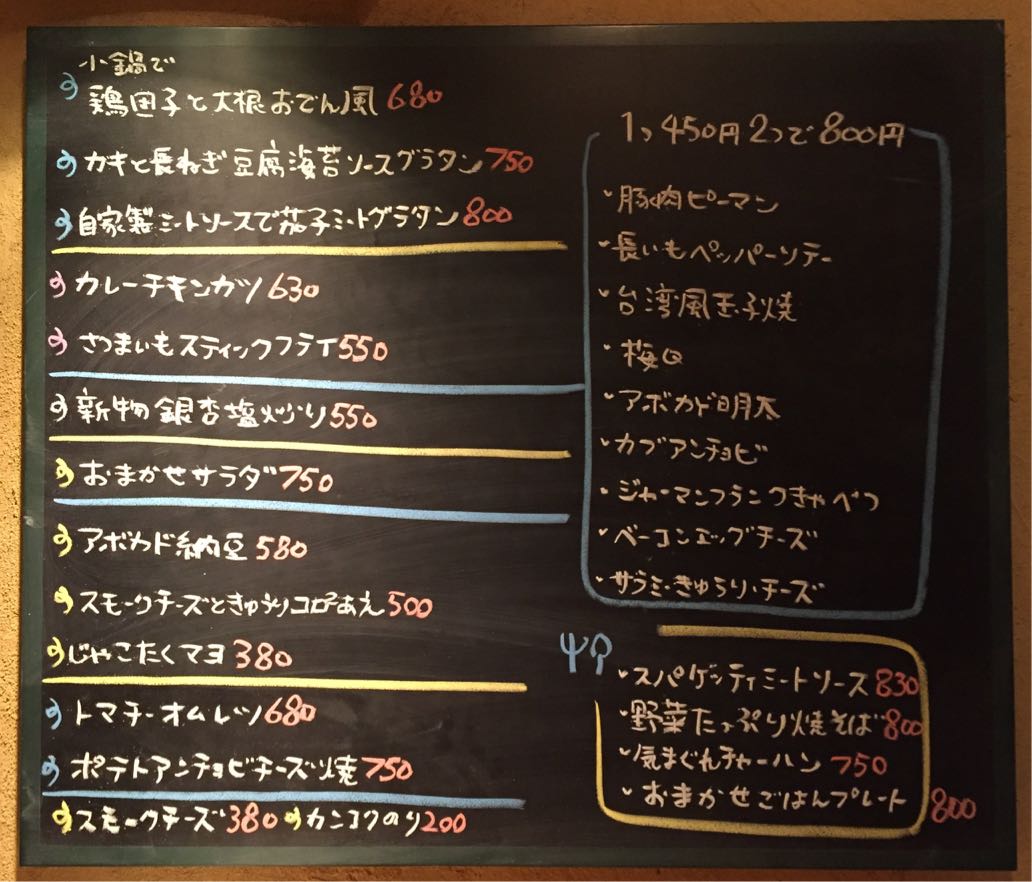 小鍋で
鶏団子と大根おでん風 680
カキと長ねぎ豆腐海苔ソースグラタン 750
自家製ミートソースで茄子ミートグラタン 800
カレーチキンカツ 630
さつまいもスティックフライ 550
新物銀杏塩炒り 550
おまかせサラダ 750
アボカド納豆 580
スモークチーズときゅうりコロコロあえ 500
じゃこたくマヨ 380
トマチーオムレツ 680
ポテトアンチョビチーズ焼 750
スモークチーズ 380 カンコクのり 200
1つ450円2つで800円
・豚肉ピーマン
・長いもペッパーソテー
・台湾風玉子焼
・アボカド明太
・カブアンチョビ
・ジャーマンフランクきゃべつ
・ベーコンエッグチーズ
・サラミ・きゅうり・チーズ
・スパゲッティミートソース 830
・野菜たっぷり焼そば 800
・気まぐれチャーハン 750
・おまかせごはんプレート 800